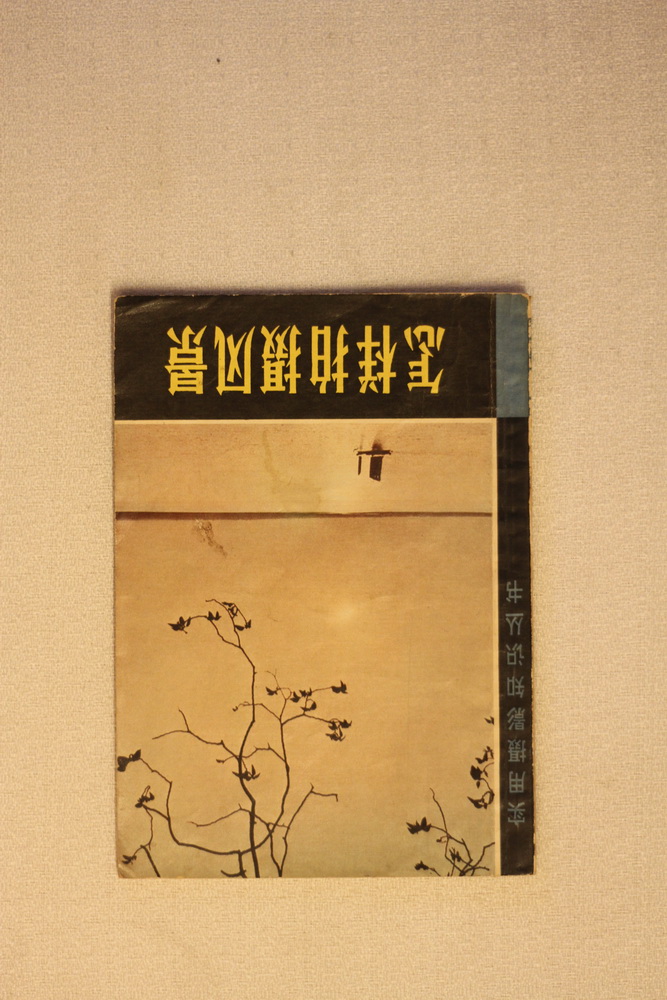 怎样拍摄风景
实用摄影知识丛书